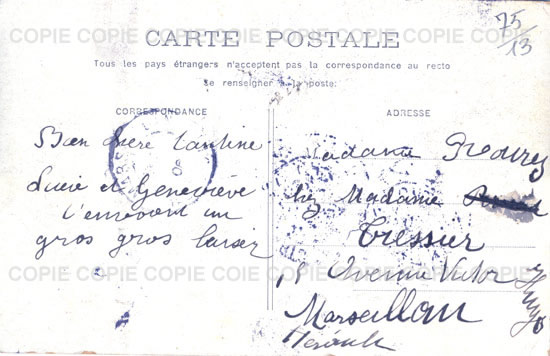 COPIE COPIE COPIE COPIE COPIE COPIE COPIE
75
13
CARTE POSTALE
Tous les pays étrangers n'acceptent pas la correspondance au recto
Se renseigner à la poste.
CORRESPONDANCE
Bien chère tantine
Lucie et Geneviève
t'envoient un
gros gros baiser
ADRESSE
Madame
chez Madame
Tressier
Avenue Victor
Hugo
Marseillan
Hérault
COPIE COPIE COPIE COPIE COPIE COPIE COPIE
COPIE COPIE COPIE COIE COPIE COPIE COPIE